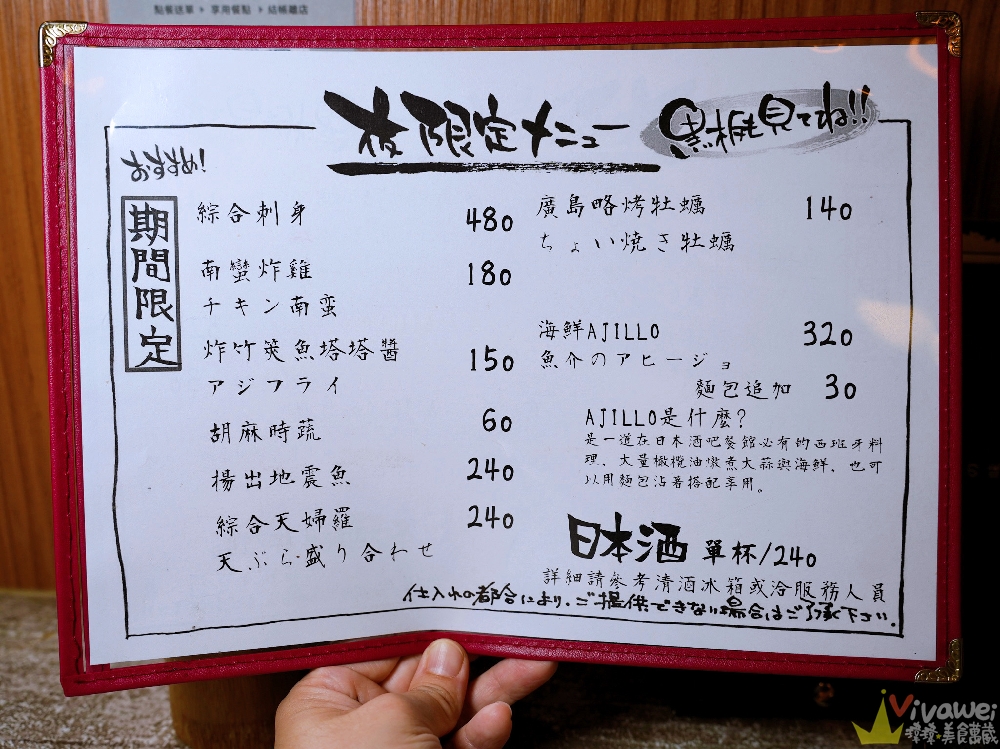 點餐送單 > 享用餐點 > 結帳離店
夜限定メニュー
黒板も見てね!!
おすすめ!
期間限定
綜合刺身 480
南蠻炸雞 180
チキン南蛮
炸竹筴魚塔塔醬 150
アジフライ
胡麻時蔬 60
揚出地震魚 240
綜合天婦羅 240
天ぷら盛り合わせ
廣島略烤牡蠣 140
ちょい焼き牡蠣
海鮮AJILLO 320
魚介のアヒージョ
麵包追加 30
AJILLO是什麼?
是一道在日本酒吧餐館必有的西班牙料
理、大量橄欖油燉煮大蒜與海鮮、也可
以用麵包沾著搭配享用。
日本酒 單杯/240
詳細請參考清酒冰箱或洽服務人員
仕入れの都合により、ご提供できない場合はご了承下さい。
Vivawei
美食蒐藏